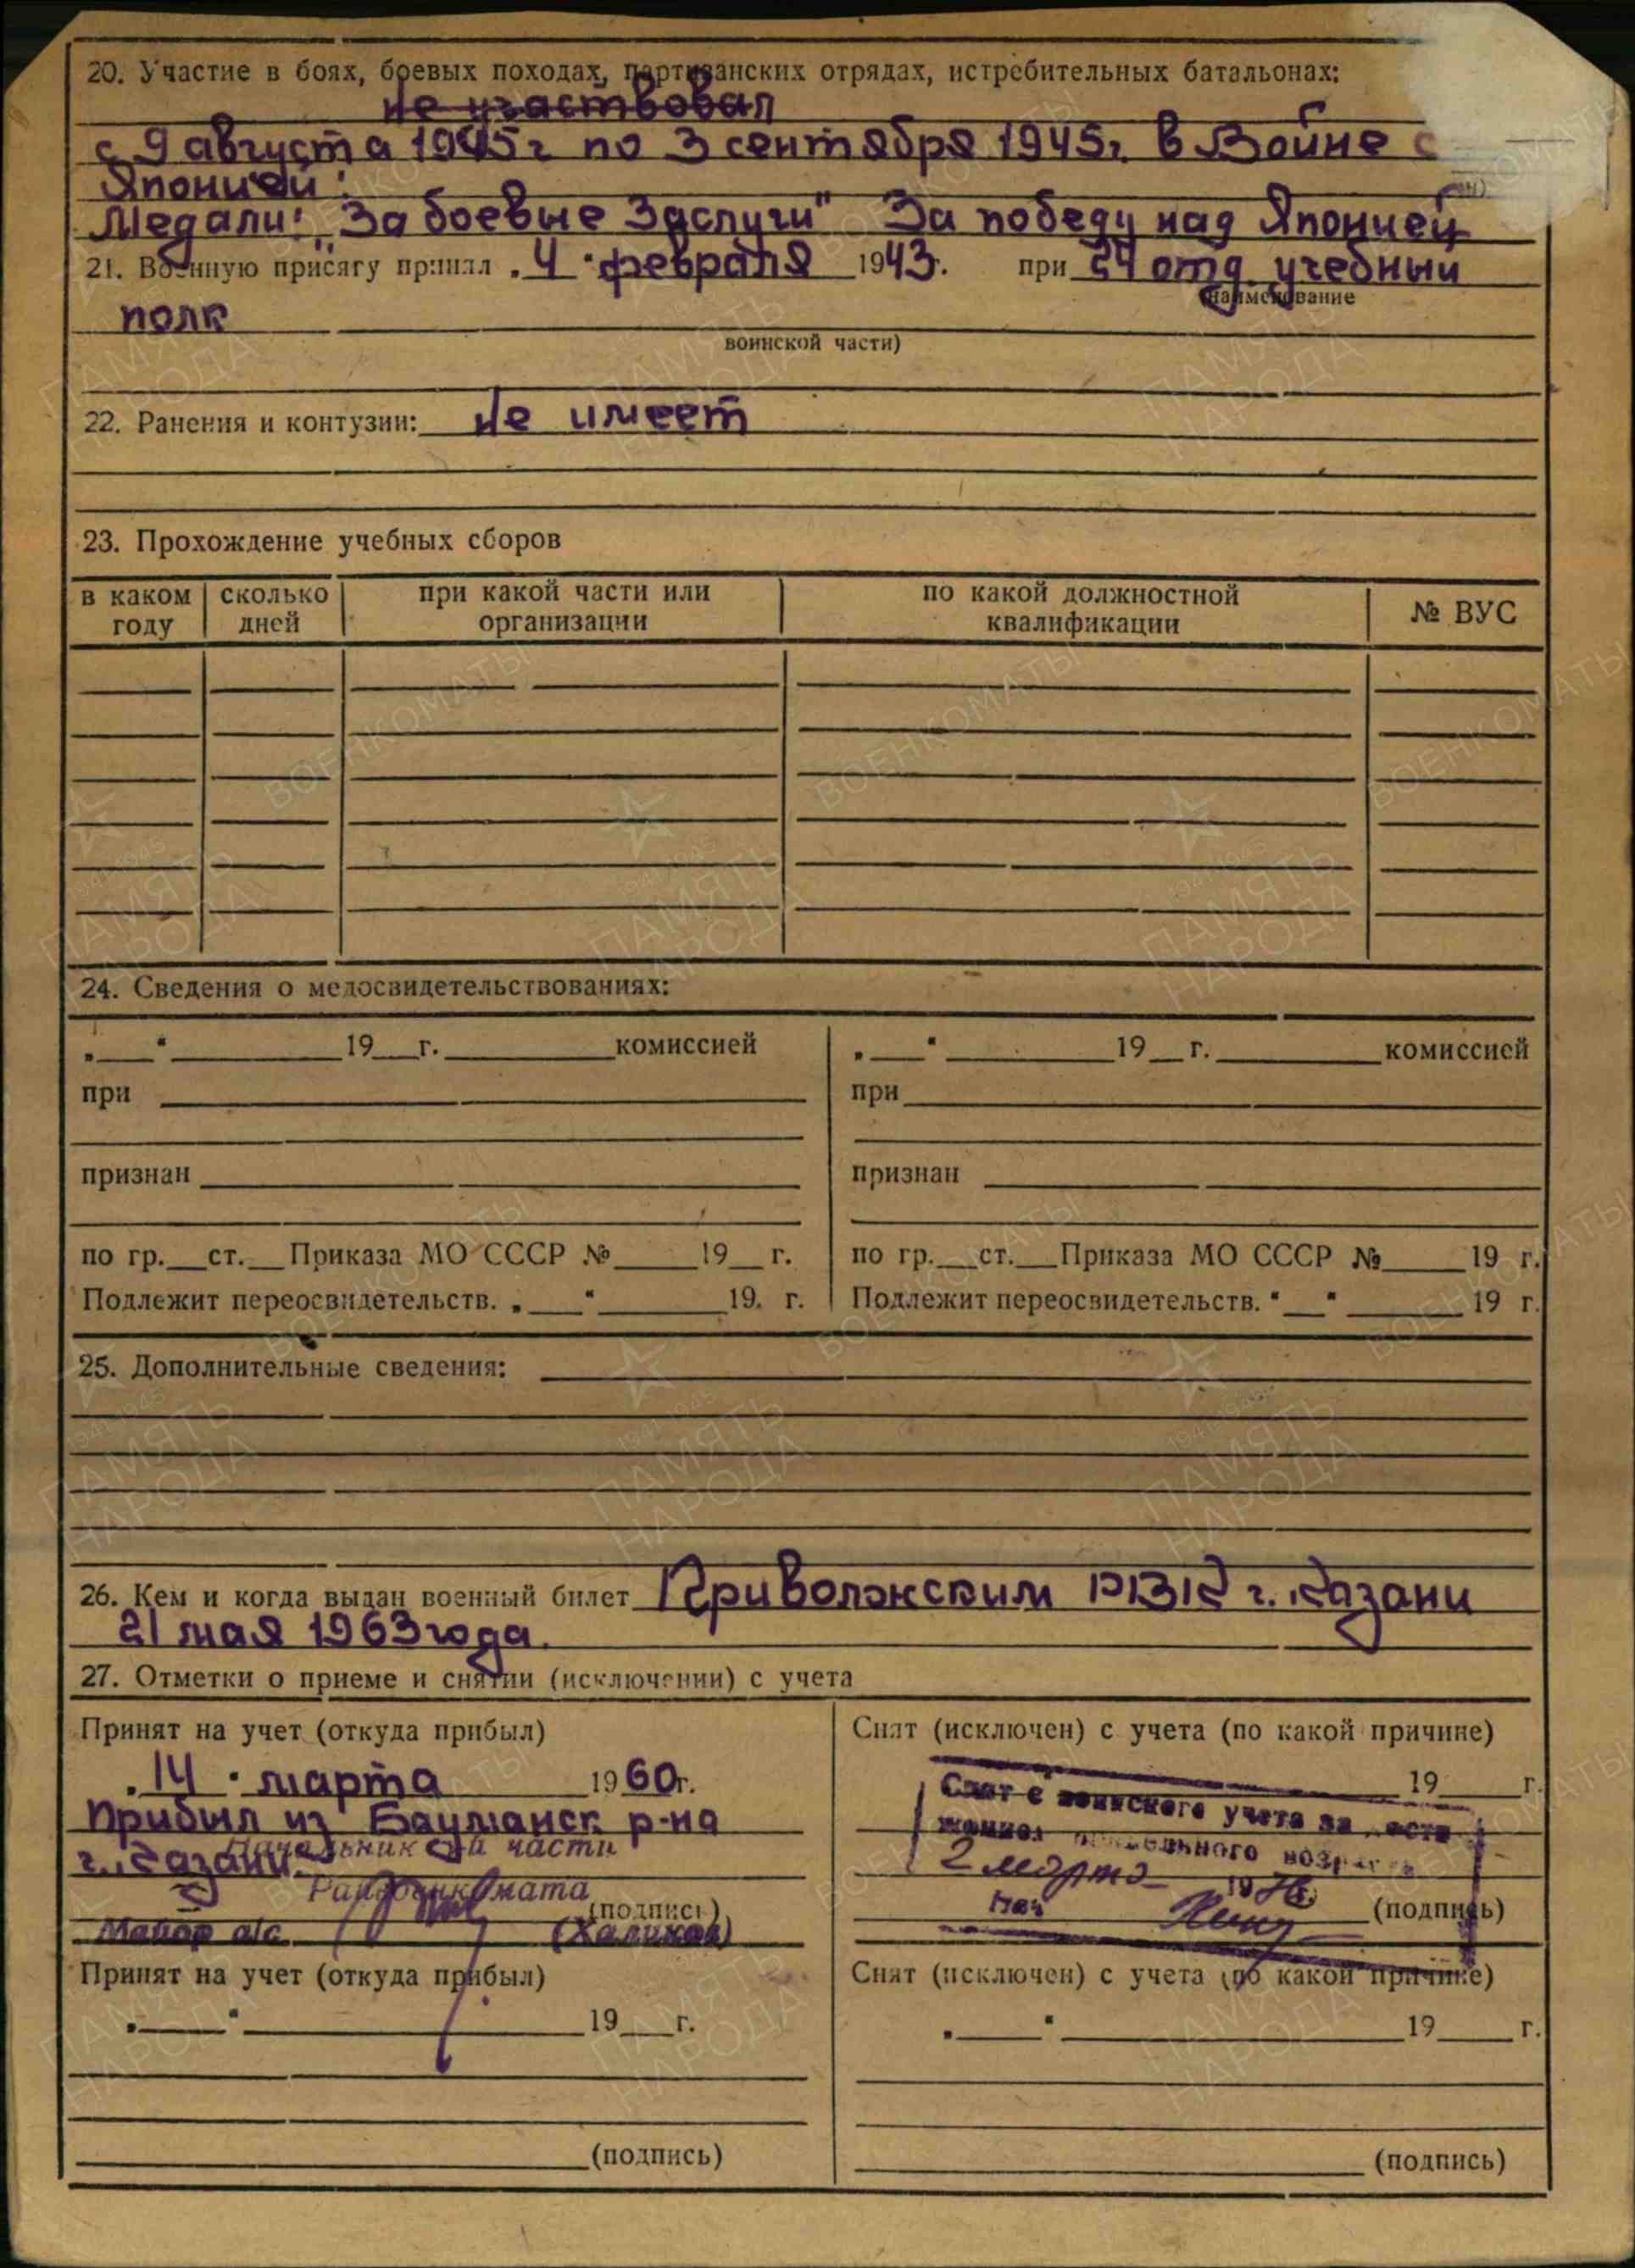 20. Участие в боях, боевых походах, партизанских отрядах, истребительных батальонах:
не участвовал
с 9 августа 1945г по 3 сентября 1945г. в Войне с
Японией.
Медали: „За боевые Заслуги" За победу над Японией
21. Военную присягу принял „4" февраля 1943г. при 54 отд. учебный
(наименование
полк
воинской части)
22. Ранения и контузии: Не имеет
23. Прохождение учебных сборов
в каком году сколько дней при какой части или организации по какой должностной квалификации № ВУС
24. Сведения о медосвидетельствованиях:
„___" ______ 19__г. ______ комиссией „___" ______ 19__г. ______ комиссией
при при
признан признан
по гр.__ст.__Приказа МО СССР №____19__г. по гр.__ст.__Приказа МО СССР №____19 г.
Подлежит переосвидетельств. „___" ______19. г. Подлежит переосвидетельств. "__" ______ 19 г.
25. Дополнительные сведения:
26. Кем и когда выдан военный билет Приволжским РВК г. Казани
21 мая 1963 года.
27. Отметки о приеме и снятии (исключении) с учета
Принят на учет (откуда прибыл)
„14" марта 1960г.
Прибыл из Бауманск р-на
г. Казани.
Начальник 2й части
Райвоенкомата
(подпись)
Майор а/с (Халиков)
Принят на учет (откуда прибыл)
„___" ______ 19__г.
(подпись)
Снят (исключен) с учета (по какой причине)
19___г.
Снят с воинского учета за дости
жением предельного возраста
2 марта 19
Нач (подпись)
Снят (исключен) с учета (по какой причине)
„___" ______ 19___г.
(подпись)
ПАМЯТЬ НАРОДА
1941-1945
ВОЕНКОМАТЫ